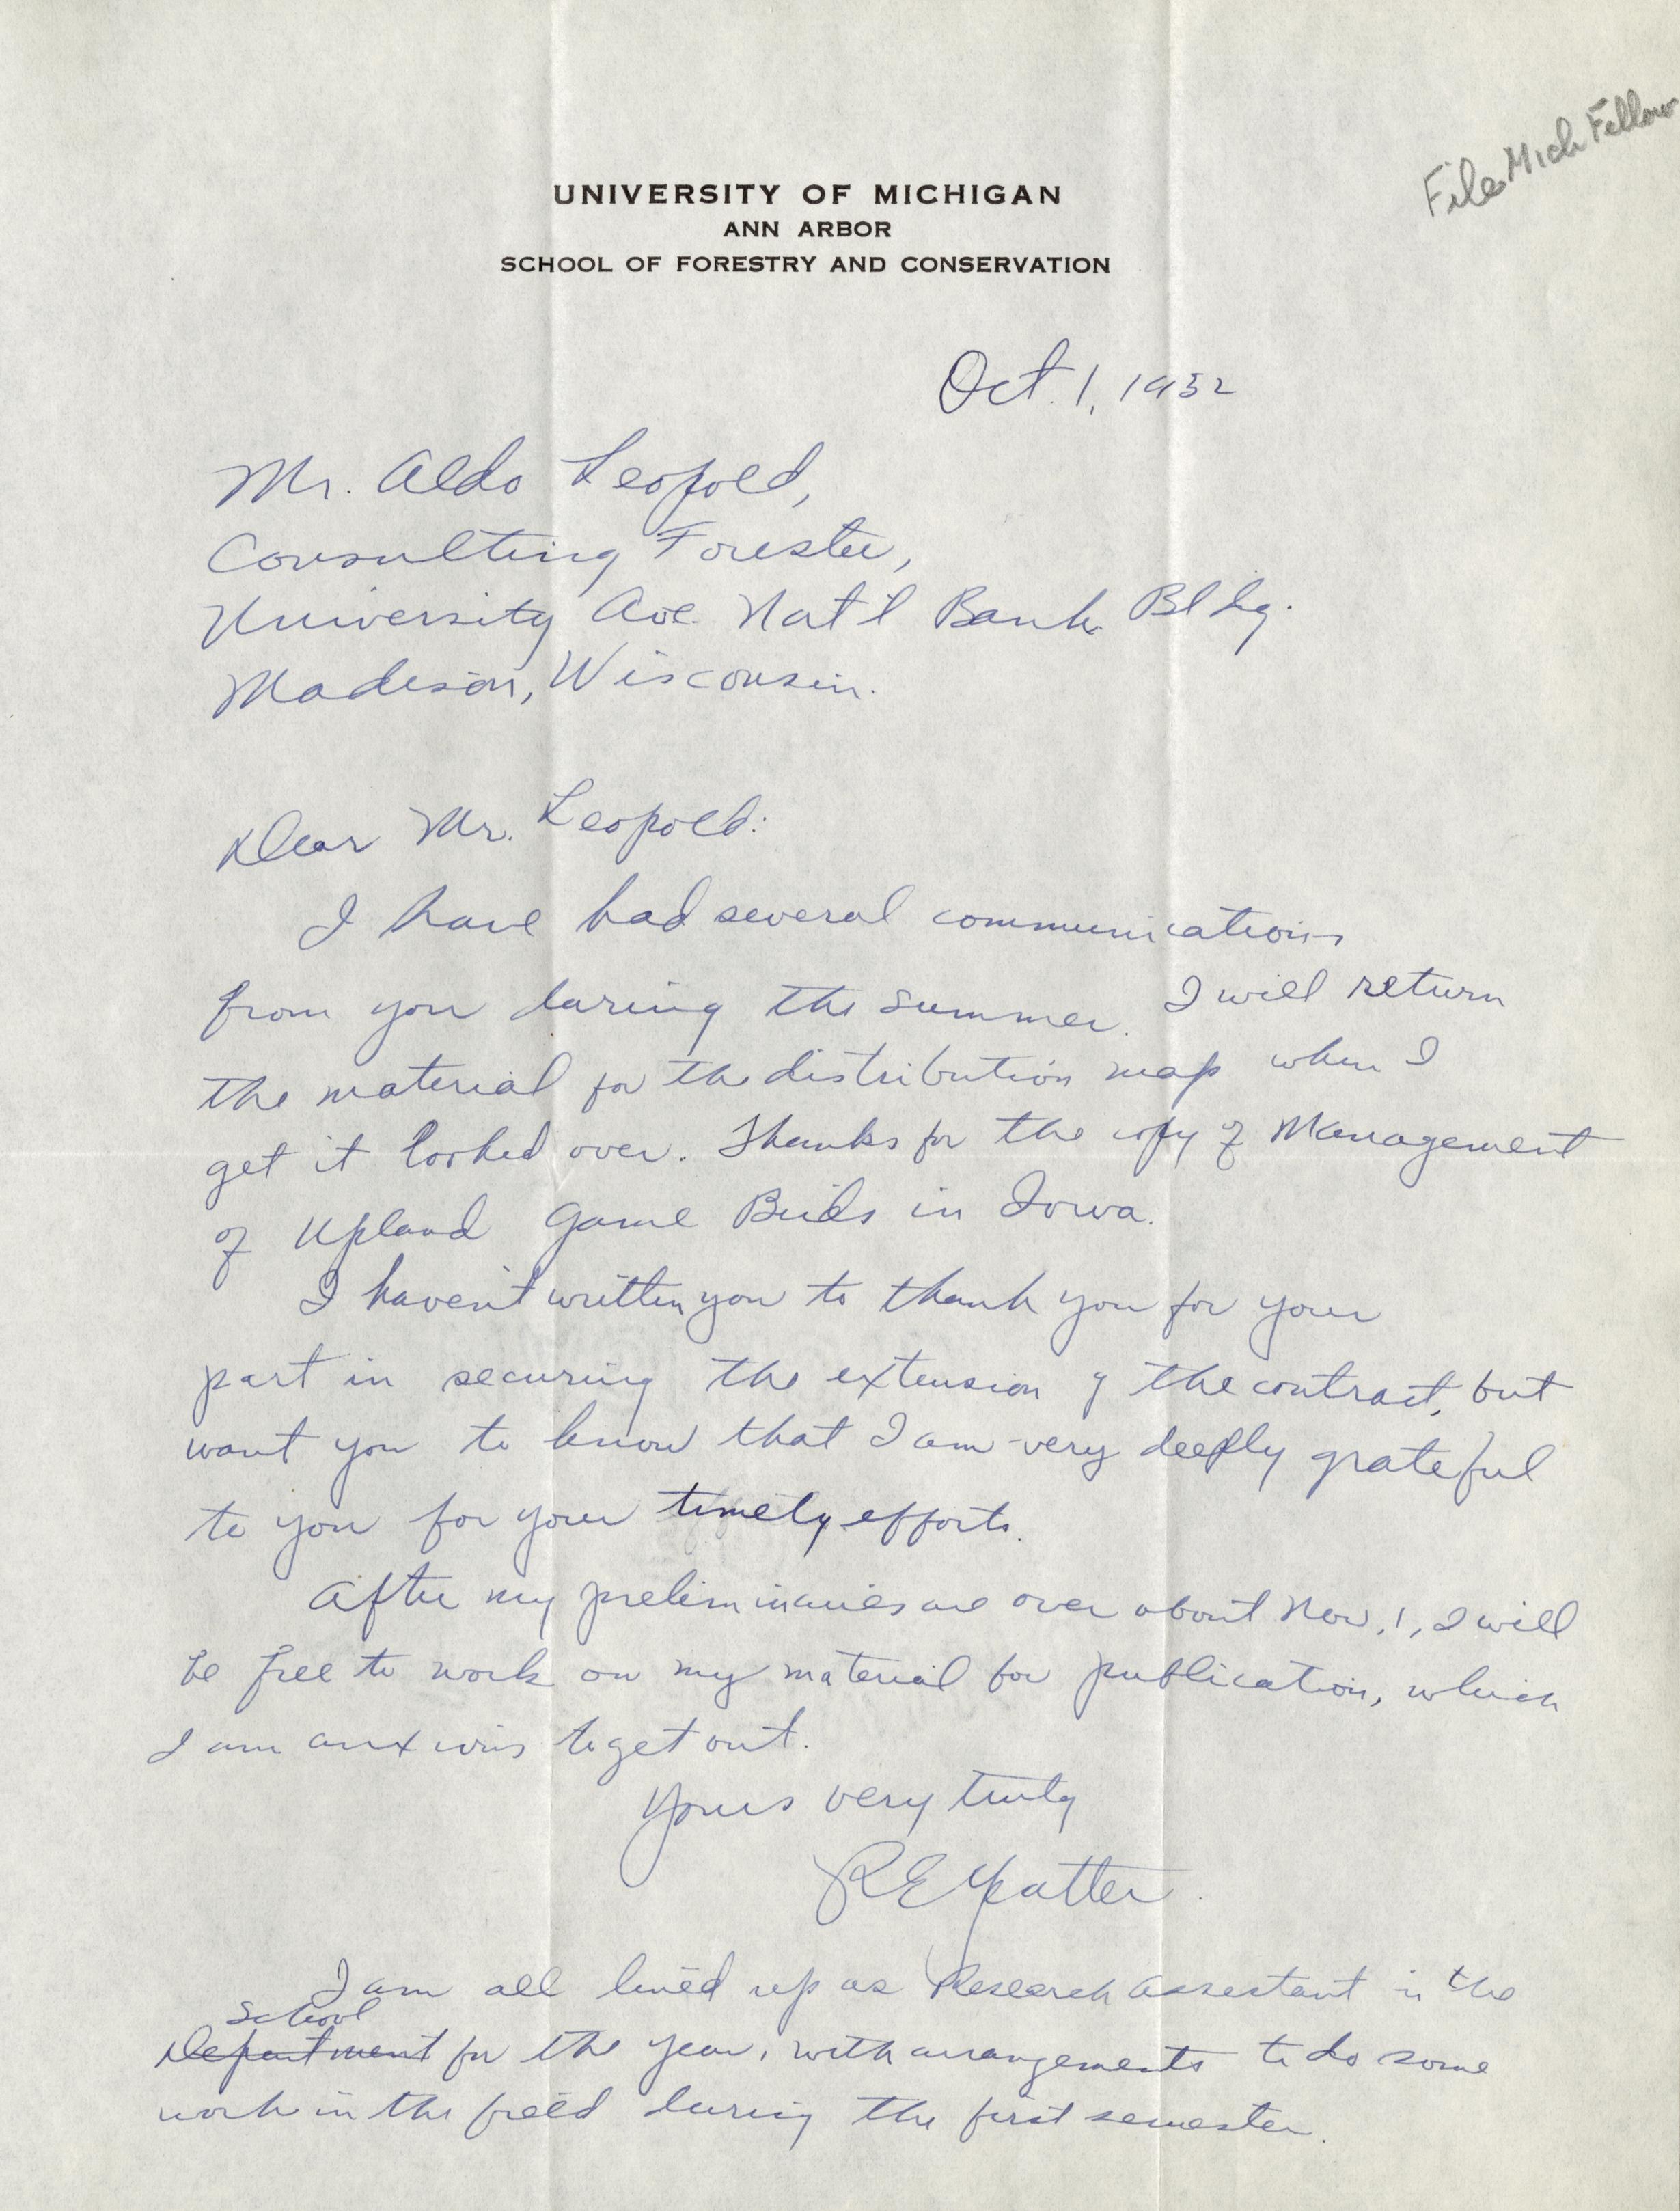 File Mich Fellow
UNIVERSITY OF MICHIGAN
ANN ARBOR
SCHOOL OF FORESTRY AND CONSERVATION
Oct. 1, 1932
Mr. Aldo Leopold,
Consulting Forester,
University Ave. Nat'l Bank Bldg.
Madison, Wisconsin.
Dear Mr. Leopold:
I have had several communications
from you during the summer. I will return
the material for the distribution map when I
get it looked over. Thanks for the copy of Management
of Upland Game Birds in Iowa.
I haven't written you to thank you for your
part in securing the extension of the contract, but
want you to know that I am very deeply grateful
to you for your timely efforts.
After my preliminaries are over about Nov. 1, I will
be free to work on my material for publication, which
I am anxious to get out.
Yours very truly
R E Yeatter
I am all lined up as Research Assistant in the
School
Department for the year, with arrangements to do some
work in the field during the first semester.